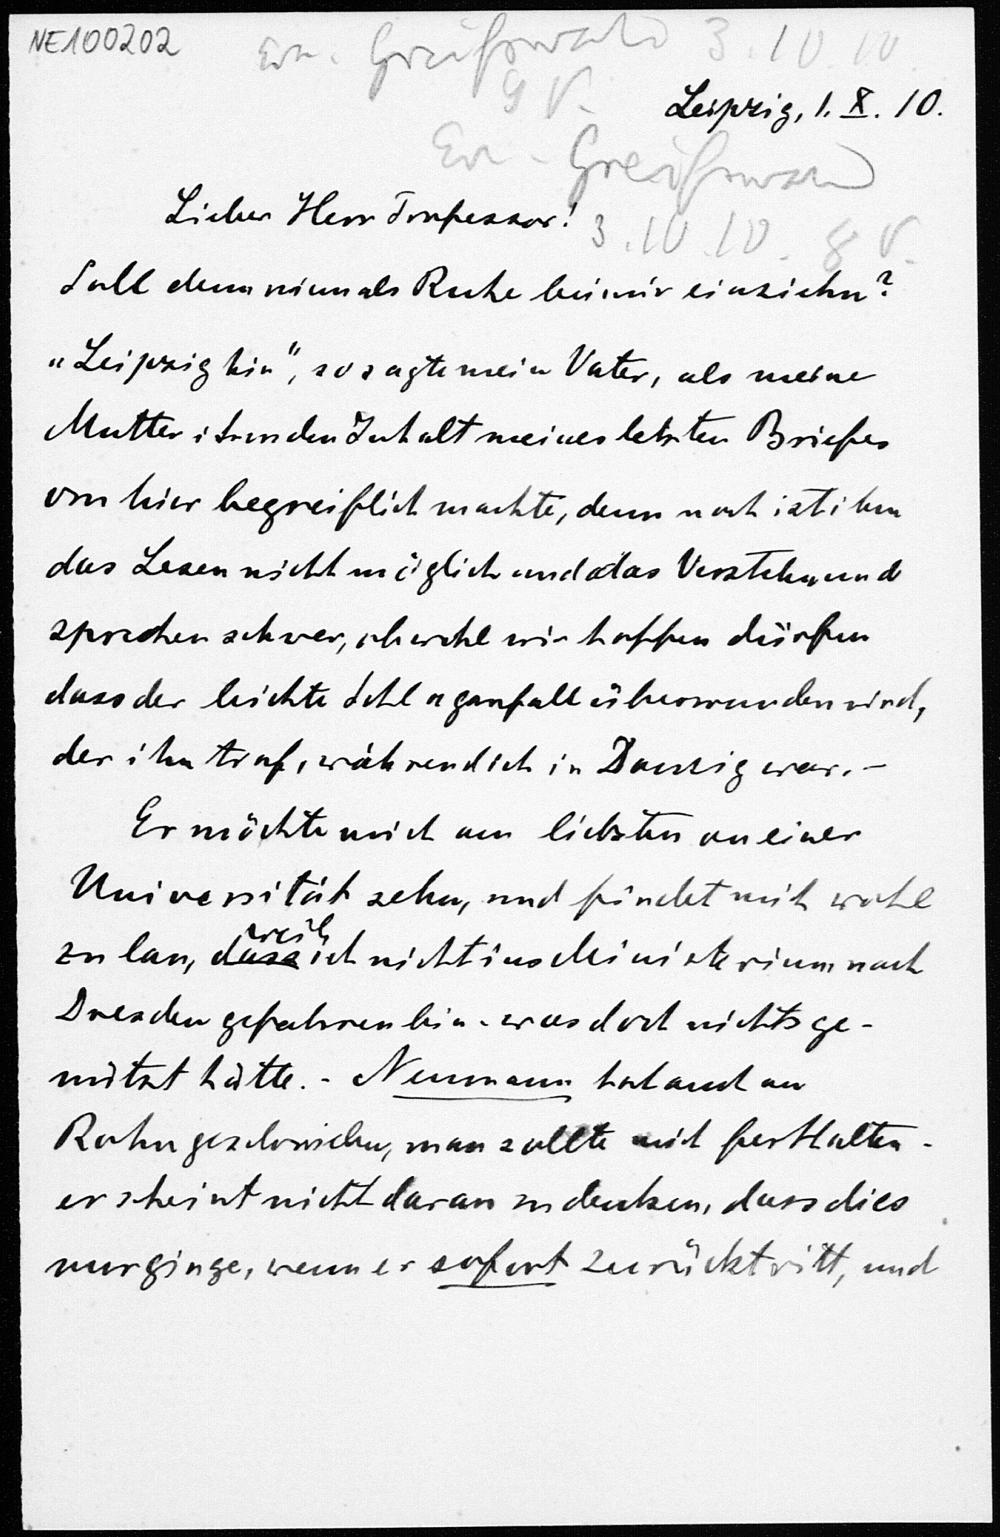 NE100202
Erh. Greifswald 3.10.10.
9 V.
Leipzig, 1. X. 10.
Erh. Greifswald
3.10.10. 8 V.
Lieber Herr Professor!
Soll denn niemals Ruhe bei mir einziehn?
„Leipzig hin", so sagte mein Vater, als meine
Mutter ihm den Inhalt meines letzten Briefes
von hier begreiflich machte, denn noch ist ihm
das Lesen nicht möglich und das Verstehn und
sprechen schwer, obwohl wir hoffen dürfen
dass der leichte Schlaganfall überwunden wird,
der ihn traf, während ich in Danzig war. –
Er möchte mich am liebsten an einer
Universität sehn, und findet mich wohl
zu lau, dass weil ich nicht ins Ministerium nach
Dresden gefahren bin - was doch nichts ge-
nützt hätte. - Neumann hat auch an
Rohn geschrieben, man sollte mich festhalten -
er scheint nicht daran zu denken, dass dies
nur ginge, wenn er sofort zurücktritt, und